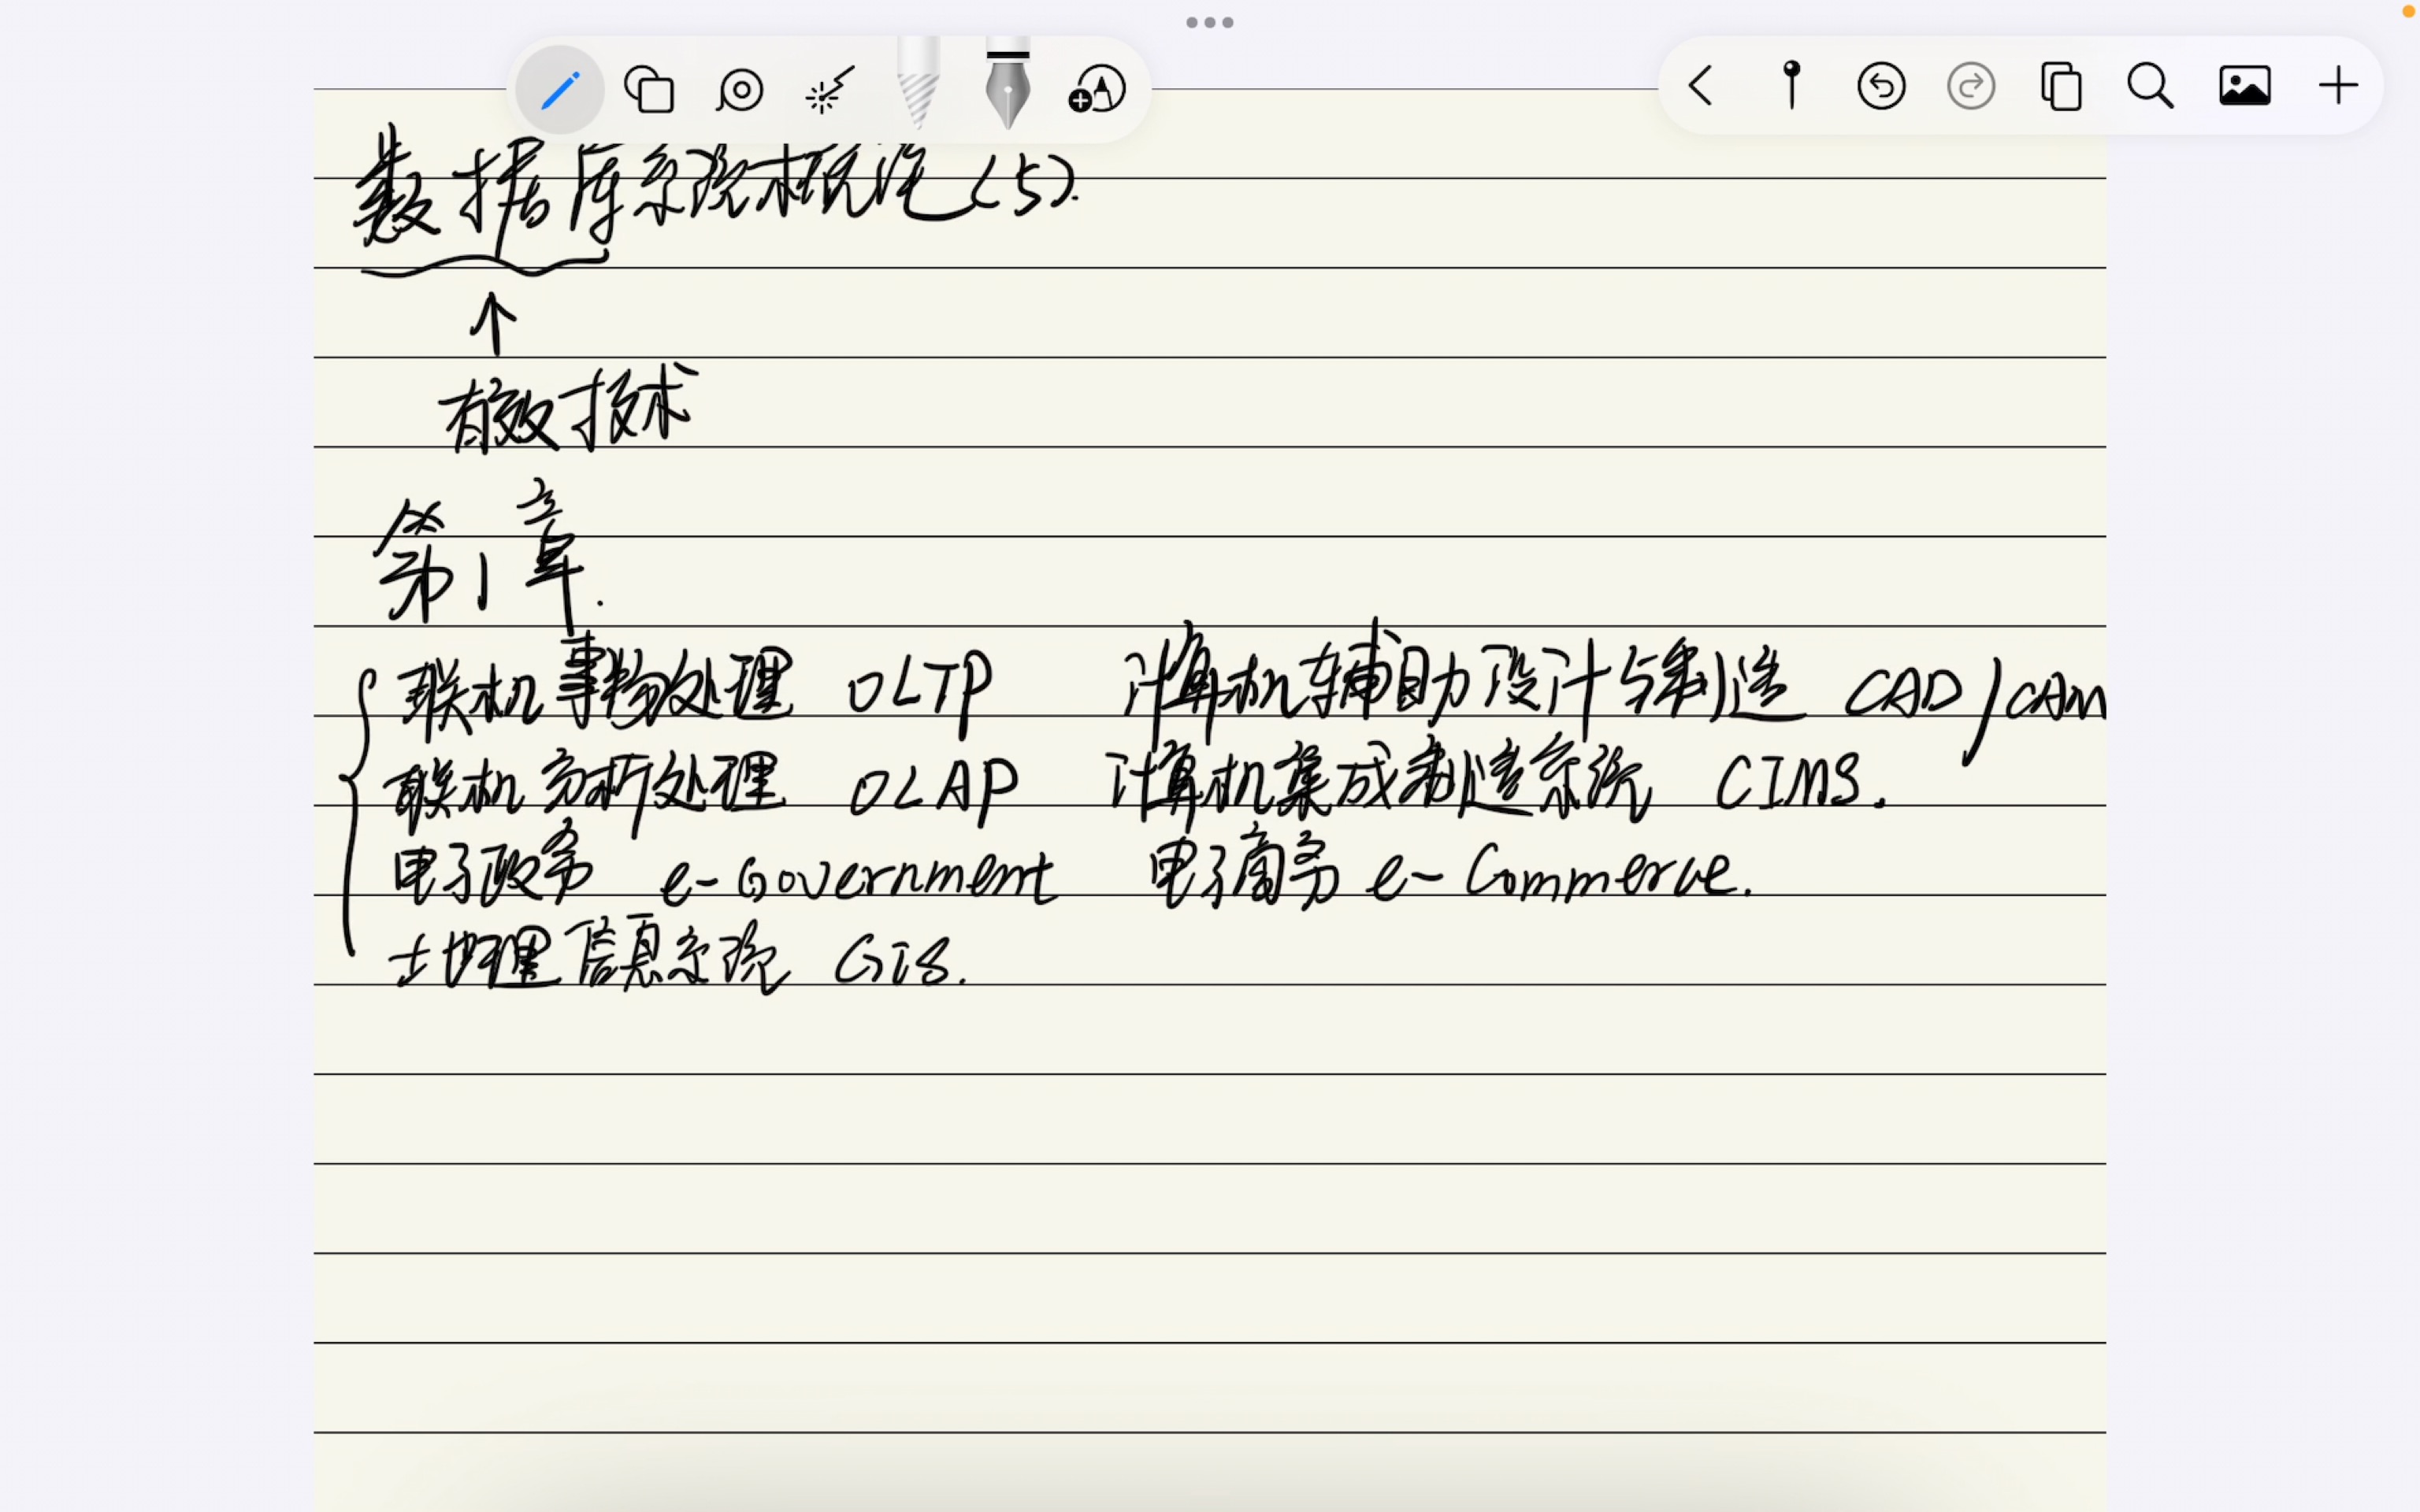 数据库系统概论(5).
有效技术
第1章.
联机事物处理 OLTP 计算机辅助设计与制造 CAD/CAM
联机分析处理 OLAP 计算机集成制造系统 CIMS.
电子政务 e-Government 电子商务 e-Commerce.
地理信息系统 GIS.